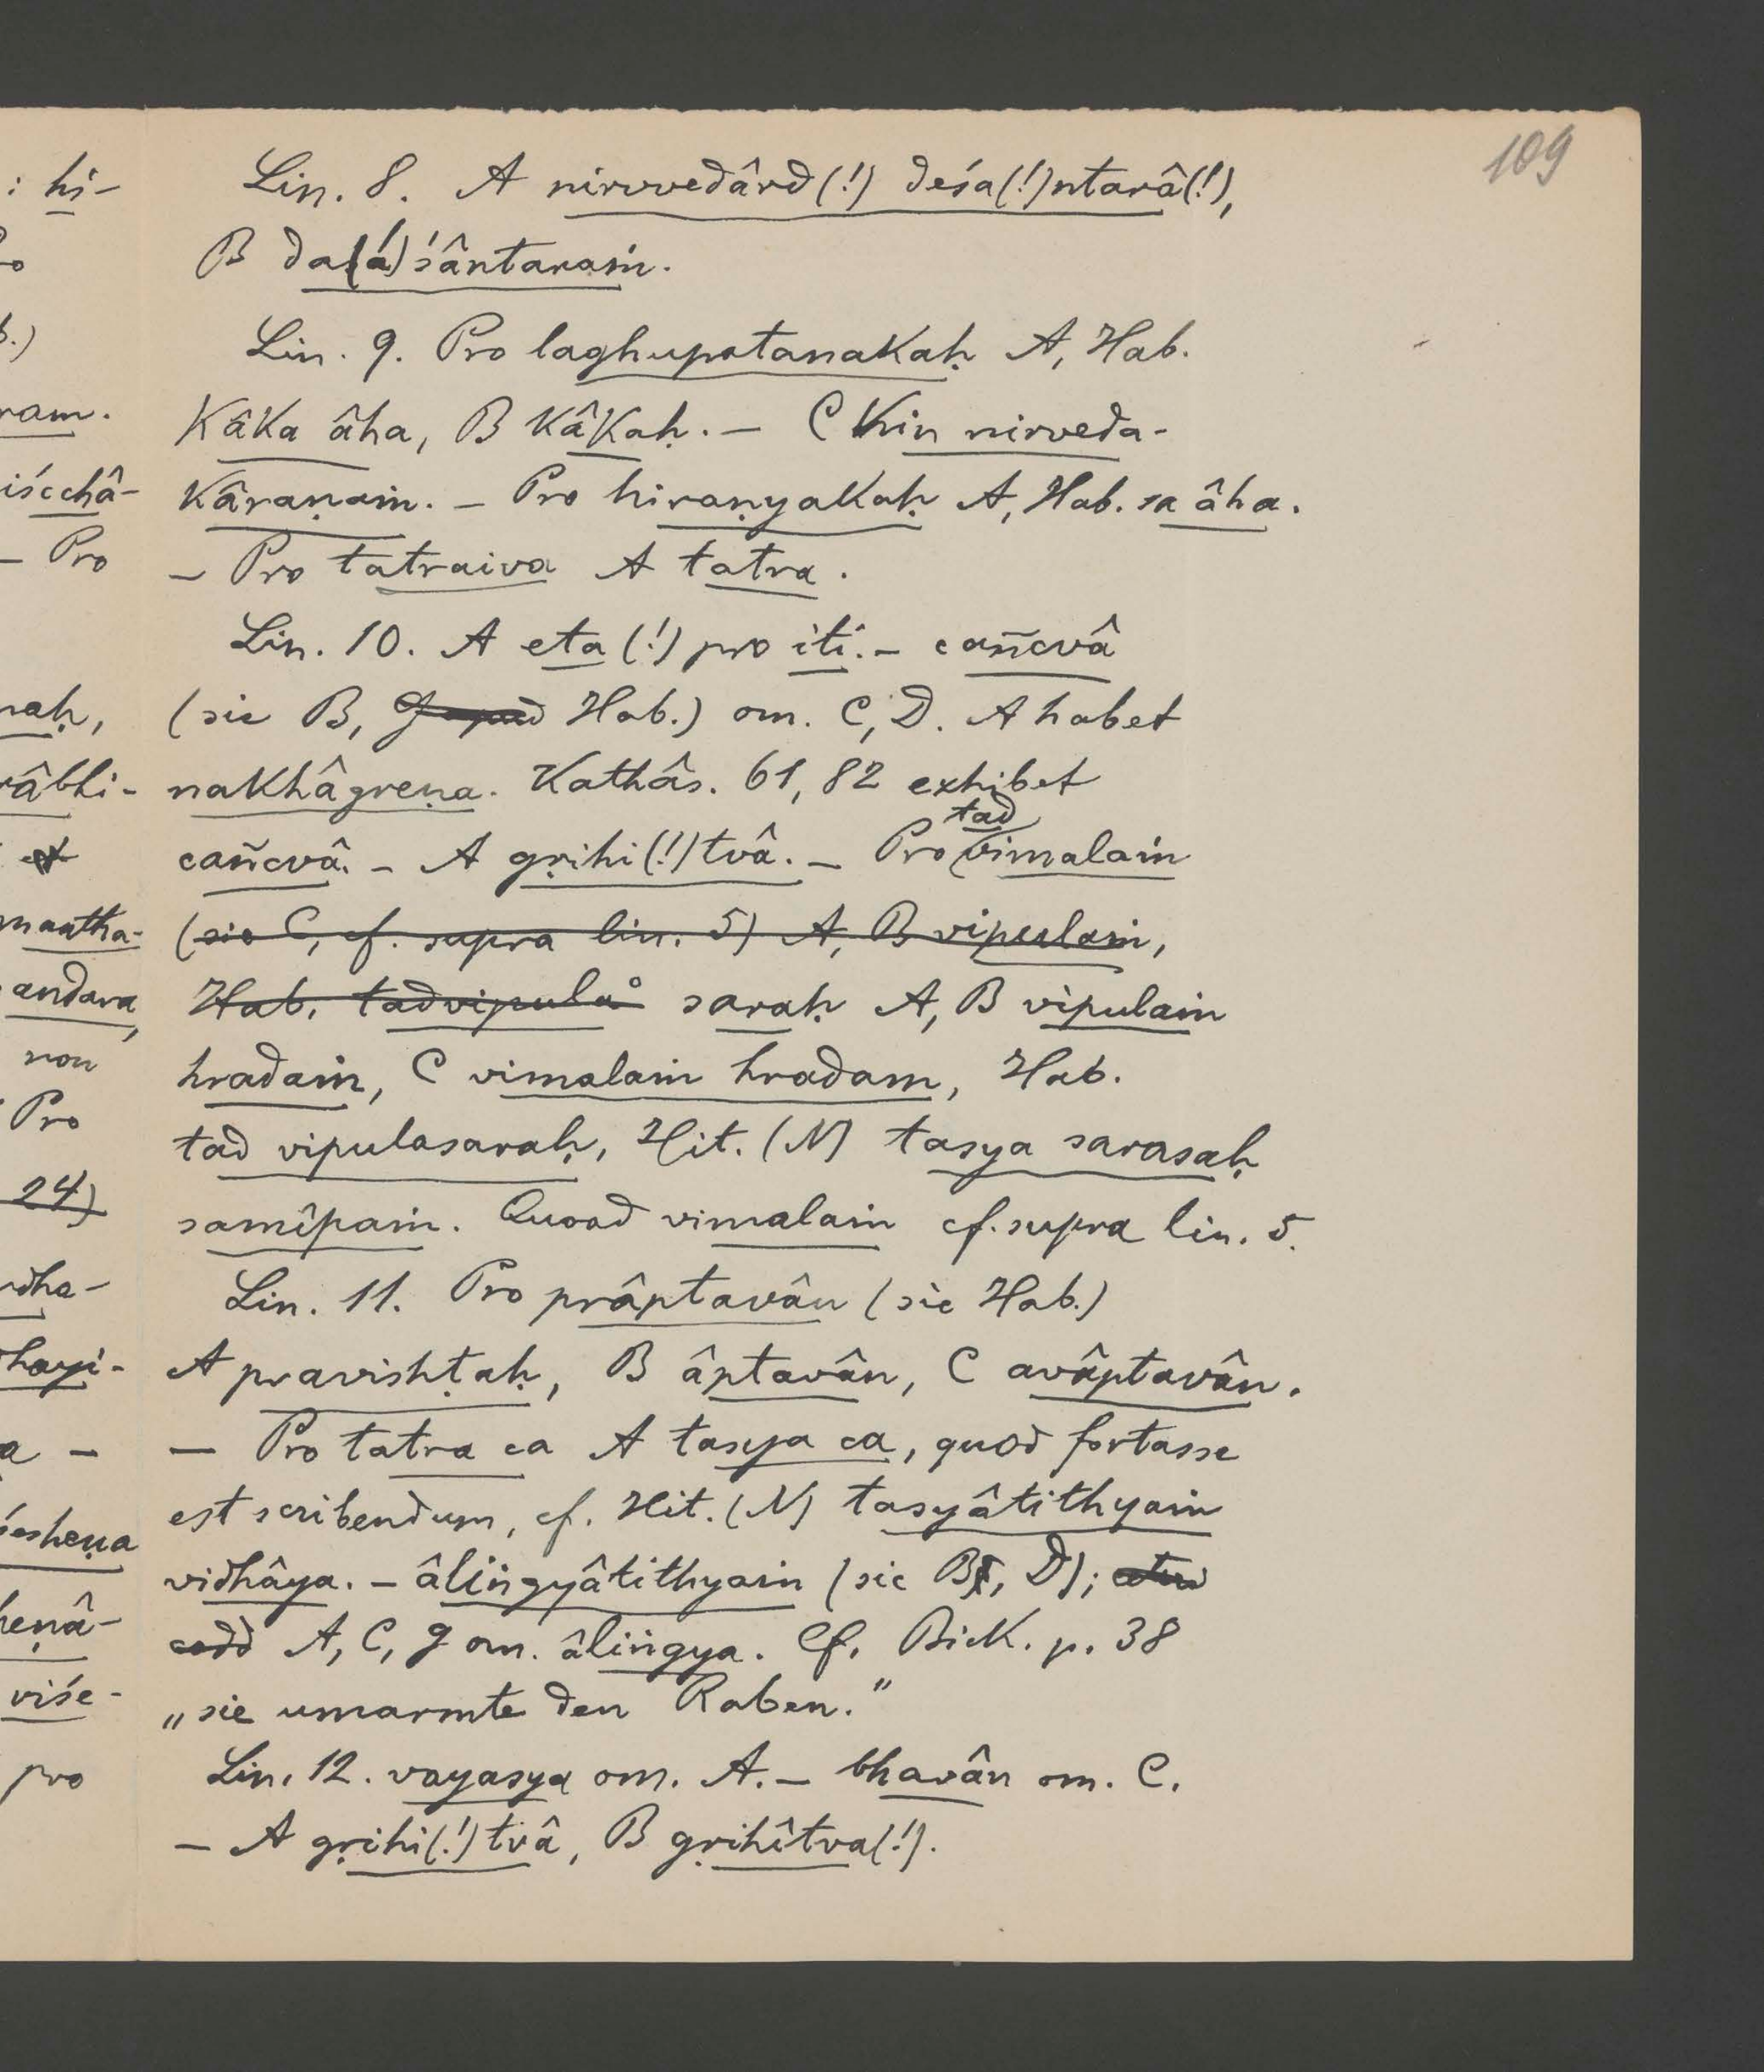 109
: hi-
b.)
ram.
iścchâ-
– Pro
naḥ,
râbhi-
et
mantha-
andara,
non
Pro
24)
dha-
hayi-
a –
śesheṇa
heṇâ-
viśe-
pro
Lin. 8. A nirvvedârd(!) deśa(!)ntarâ(!),
B da(!)śântaraṁ.
Lin. 9. Pro laghupatanakaḥ A, Hab.
kâka âha, B kâkaḥ. – C kin nirveda-
kâraṇaṁ. – Pro hiraṇyakaḥ A, Hab. sa âha.
– Pro tatraiva A tatra.
Lin. 10. A eta (!) pro iti. – cañcvâ
(sic B, Hab.) om. C, D. A habet
nakhâgreṇa. Kathâs. 61, 82 exhibet
cañcvâ. – A gṛihi(!)tvâ. – Pro tad vimalaṁ
(sic C, cf. supra lin. 5) A, B vipulaṁ,
Hab. tadvipula° saraḥ A, B vipulaṁ
hradaṁ, C vimalaṁ hradam, Hab.
tad vipulasaraḥ, Hit. (N) tasya sarasaḥ
samîpaṁ. Quoad vimalaṁ cf. supra lin. 5.
Lin. 11. Pro prâptavân (sic Hab.)
A pravishṭaḥ, B âptavân, C avâptavân.
– Pro tatra ca A tasya ca, quod fortasse
est scribendum, cf. Hit. (N) tasyâtithyaṁ
vidhâya. – âliṅgyâtithyaṁ (sic B, D);
codd A, C, g om. âliṅgya. Cf. Bick. p. 38
„sie umarmte den Raben."
Lin. 12. vayasya om. A. – bhavân om. C.
– A gṛihi(!)tvâ, B gṛihîtva(!).